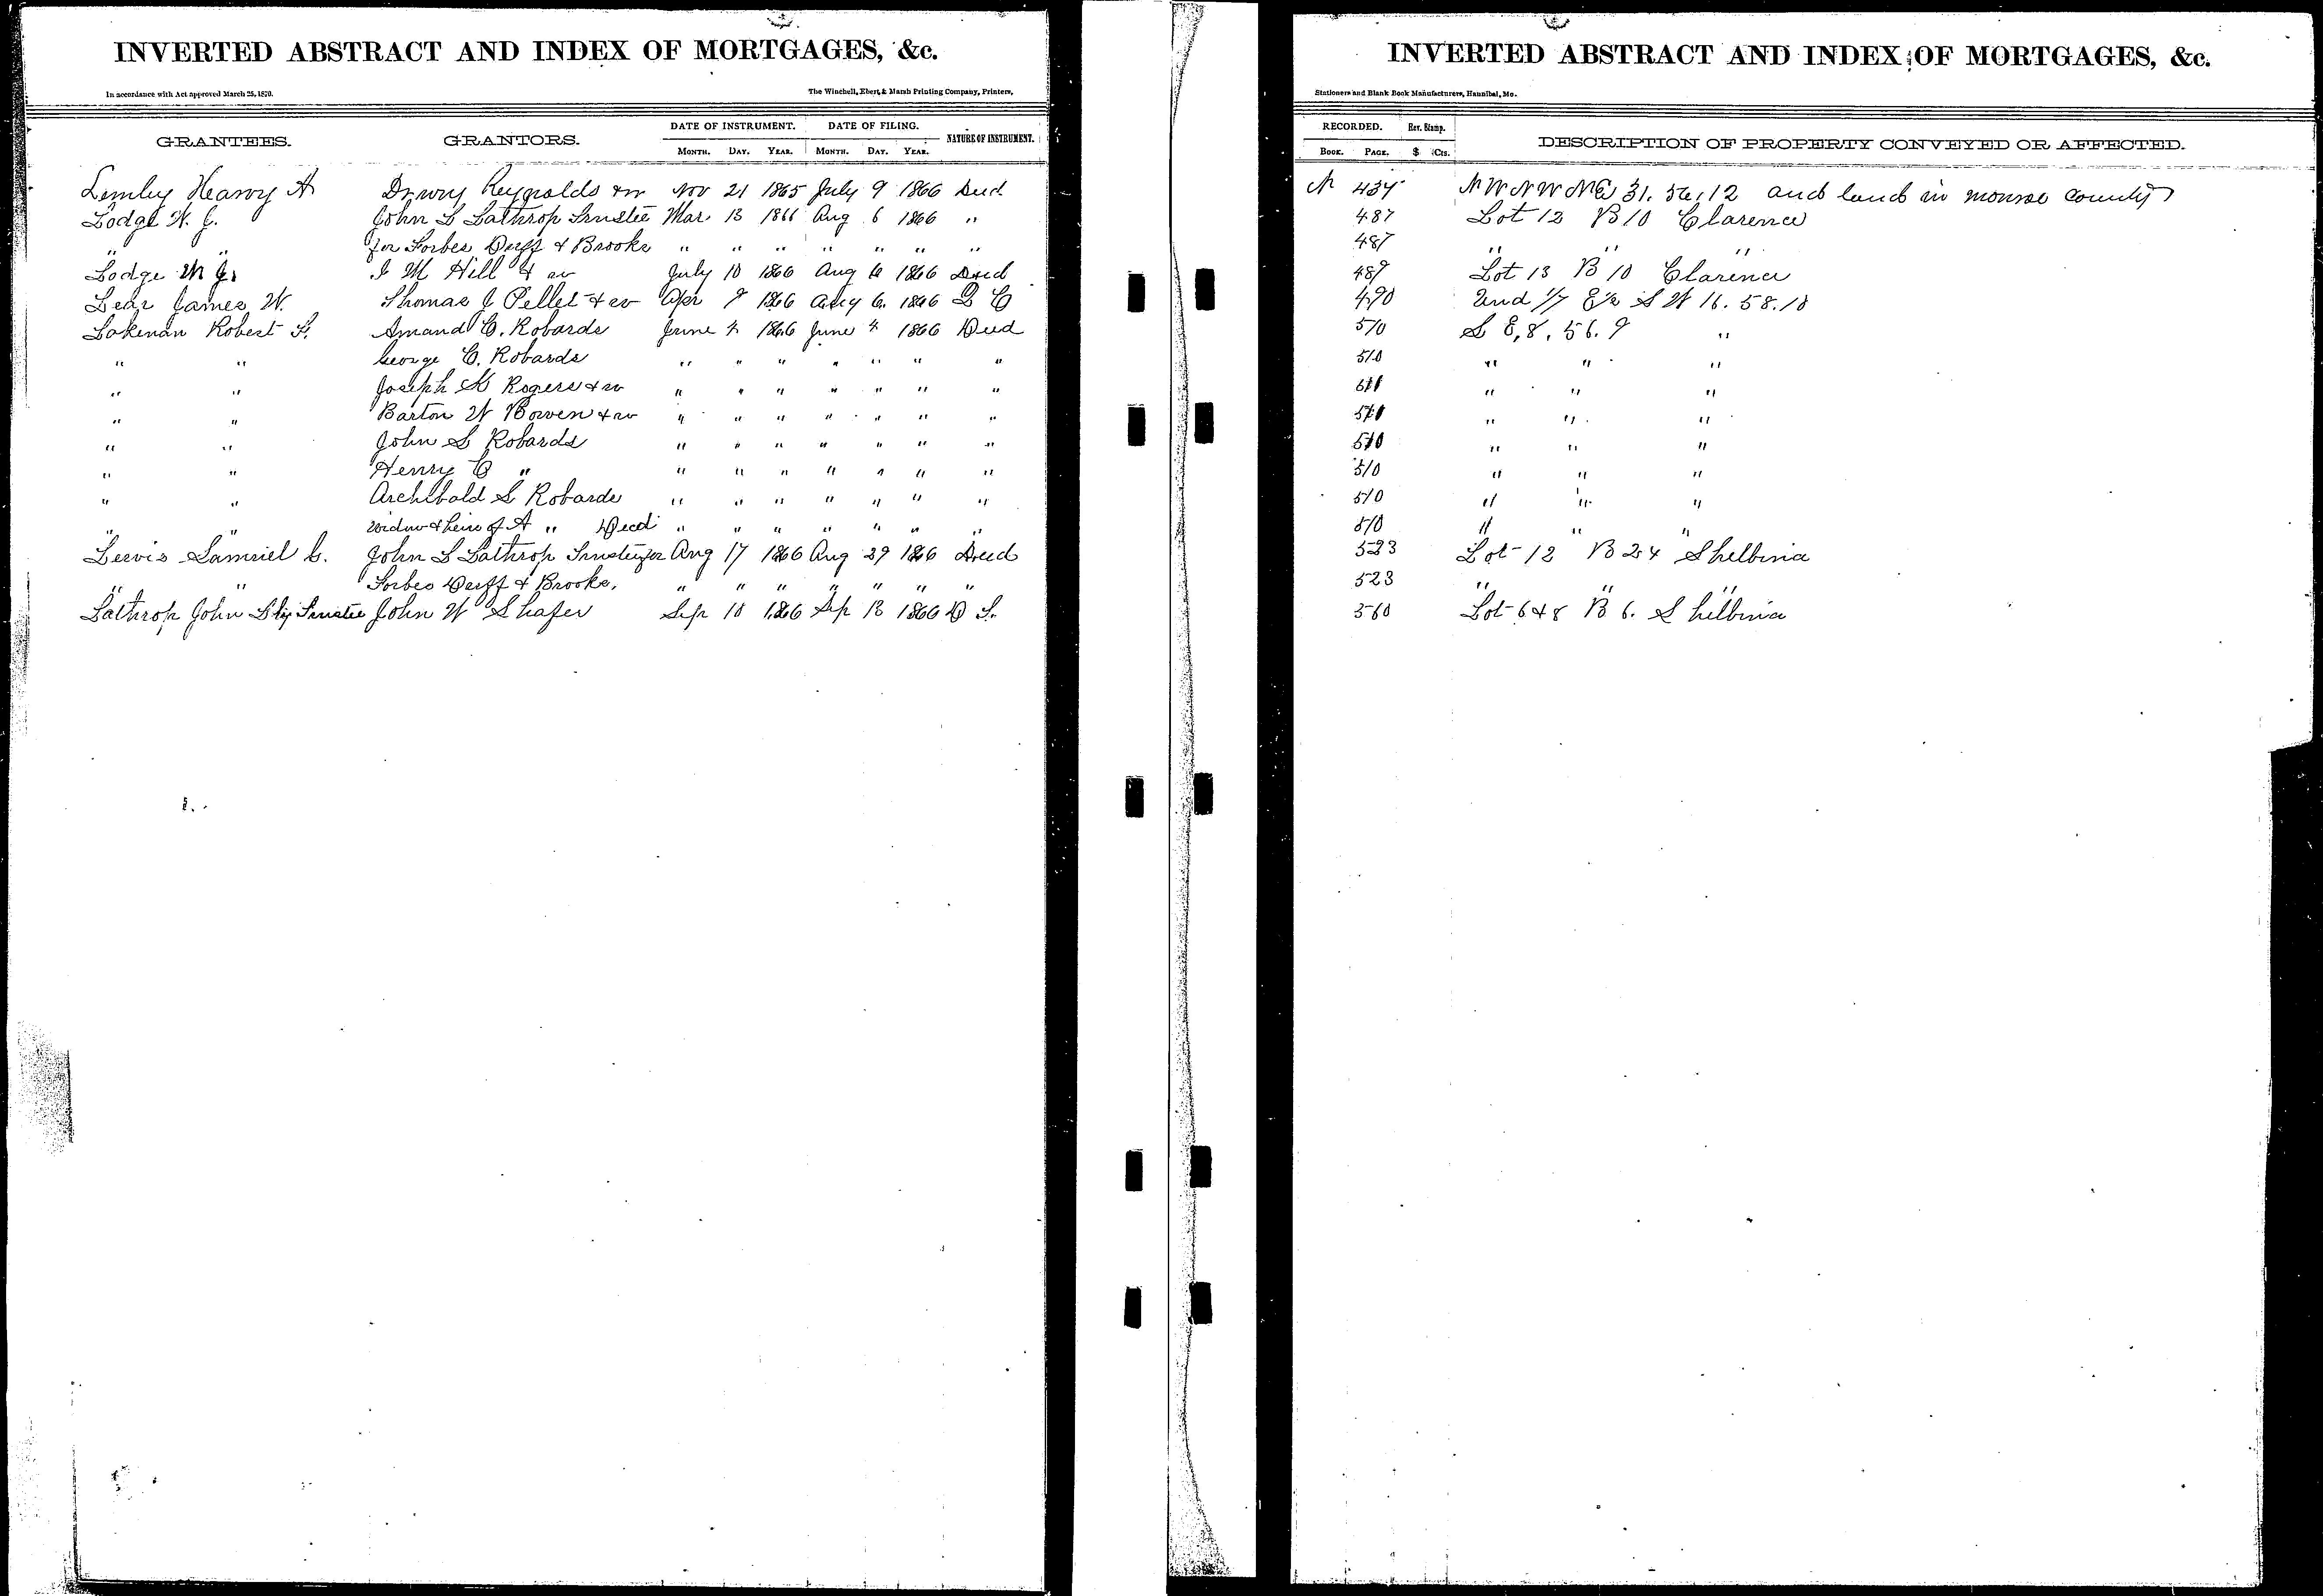 INVERTED ABSTRACT AND INDEX OF MORTGAGES, &c.
In accordance with Act approved March 25, 1870. The Winchell, Ebert & Marsh Printing Company, Printers,
GRANTEES. GRANTORS. DATE OF INSTRUMENT. DATE OF FILING. NATURE OF INSTRUMENT.
MONTH. DAY. YEAR. MONTH. DAY. YEAR.
Lemley Hearvy A Drewry Reygnolds & w Nov 21 1865 July 9 1866 Deed
Lodge W. J. John L Lathrop Trustee Mar 13 1866 Aug 6 1866 "
" " for Forbes Duff & Brooke " " " " " " "
Lodge M J. I M Hill & w July 10 1866 Aug 6 1866 Deed
Lear James W. Thomas J Pellet & w Apr 9 1866 Aug 6. 1866 Q C
Lakenan Robert F. Amand C. Robards June 4 1866 June 4 1866 Deed
" " George C. Robards " " " " " " "
" " Joseph K Rogers & w " " " " " " "
" " Barton W Bowen & w " " " " " " "
" " John L Robards " " " " " " "
" " Henry C " " " " " " " "
" " Archibald S Robards " " " " " " "
" " widow & heirs of A " Decd " " " " " " "
Lewis Samuel C. John L Lathrop Trustee for Aug 17 1866 Aug 29 1866 Deed
" " Forbes Duff & Brooke. " " " " " " "
Lathrop John L Trustee John W Shafer Sep 10 1866 Sep 13 1866 D T.
INVERTED ABSTRACT AND INDEX OF MORTGAGES, &c.
Stationers and Blank Book Manufacturers, Hannibal, Mo.
RECORDED. Rev. Stamp. DESCRIPTION OF PROPERTY CONVEYED OR AFFECTED.
BOOK. PAGE. $ Cts.
N 434 NW NW NE 31. 56. 12 and land in monroe county
487 Lot 12 B 10 Clarence
487 " " "
489 Lot 13 B 10 Clarence
490 Und 1/7 E½ S W 16. 58. 10
510 S E, 8. 56. 9 "
510 " " "
511 " " "
510 " " "
510 " " "
510 " " "
510 " " "
510 " " "
523 Lot 12 B 24 Shelbina
523 " " "
560 Lot 6 & 8 B 6. Shelbina